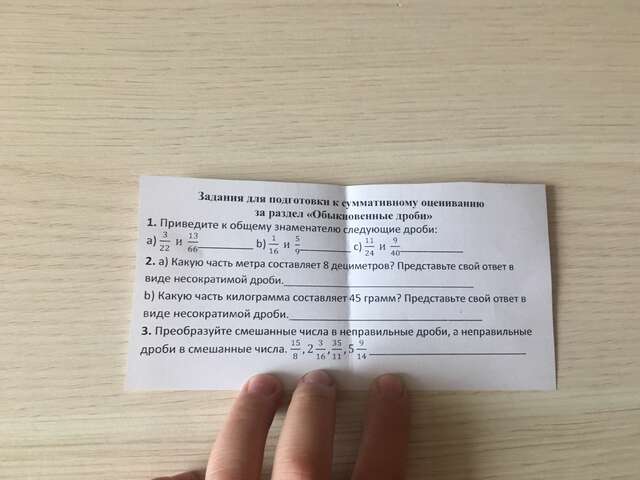 Задания для подготовки к суммативному оцениванию
за раздел «Обыкновенные дроби»
1. Приведите к общему знаменателю следующие дроби:
a) 3/22 и 13/66__________ b) 1/16 и 5/9__________ c) 11/24 и 9/40__________
2. a) Какую часть метра составляет 8 дециметров? Представьте свой ответ в
виде несократимой дроби.______________________________
b) Какую часть килограмма составляет 45 грамм? Представьте свой ответ в
виде несократимой дроби.______________________________
3. Преобразуйте смешанные числа в неправильные дроби, а неправильные
дроби в смешанные числа. 15/8, 2 3/16, 35/11, 5 9/14 ______________________________